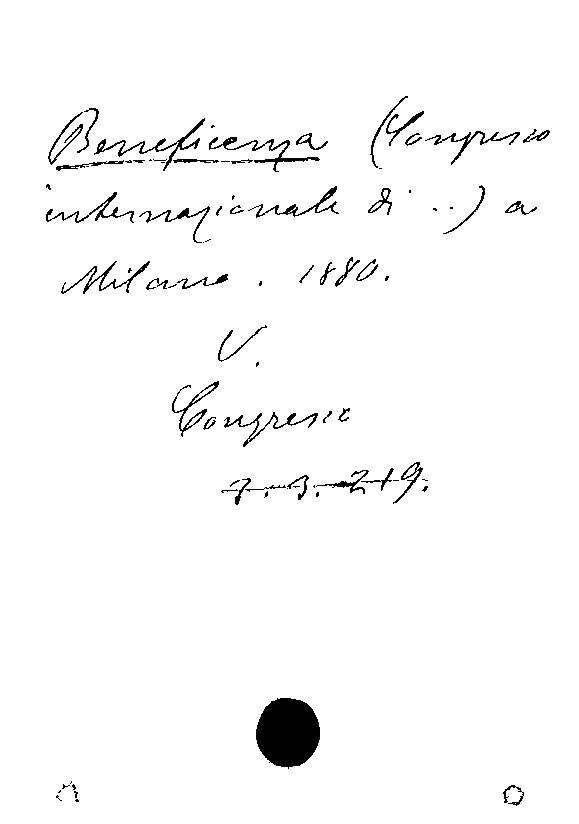 Beneficenza (Congresso
internazionale di ..) a
Milano . 1880.
V.
Congresso
7. 3. 219.